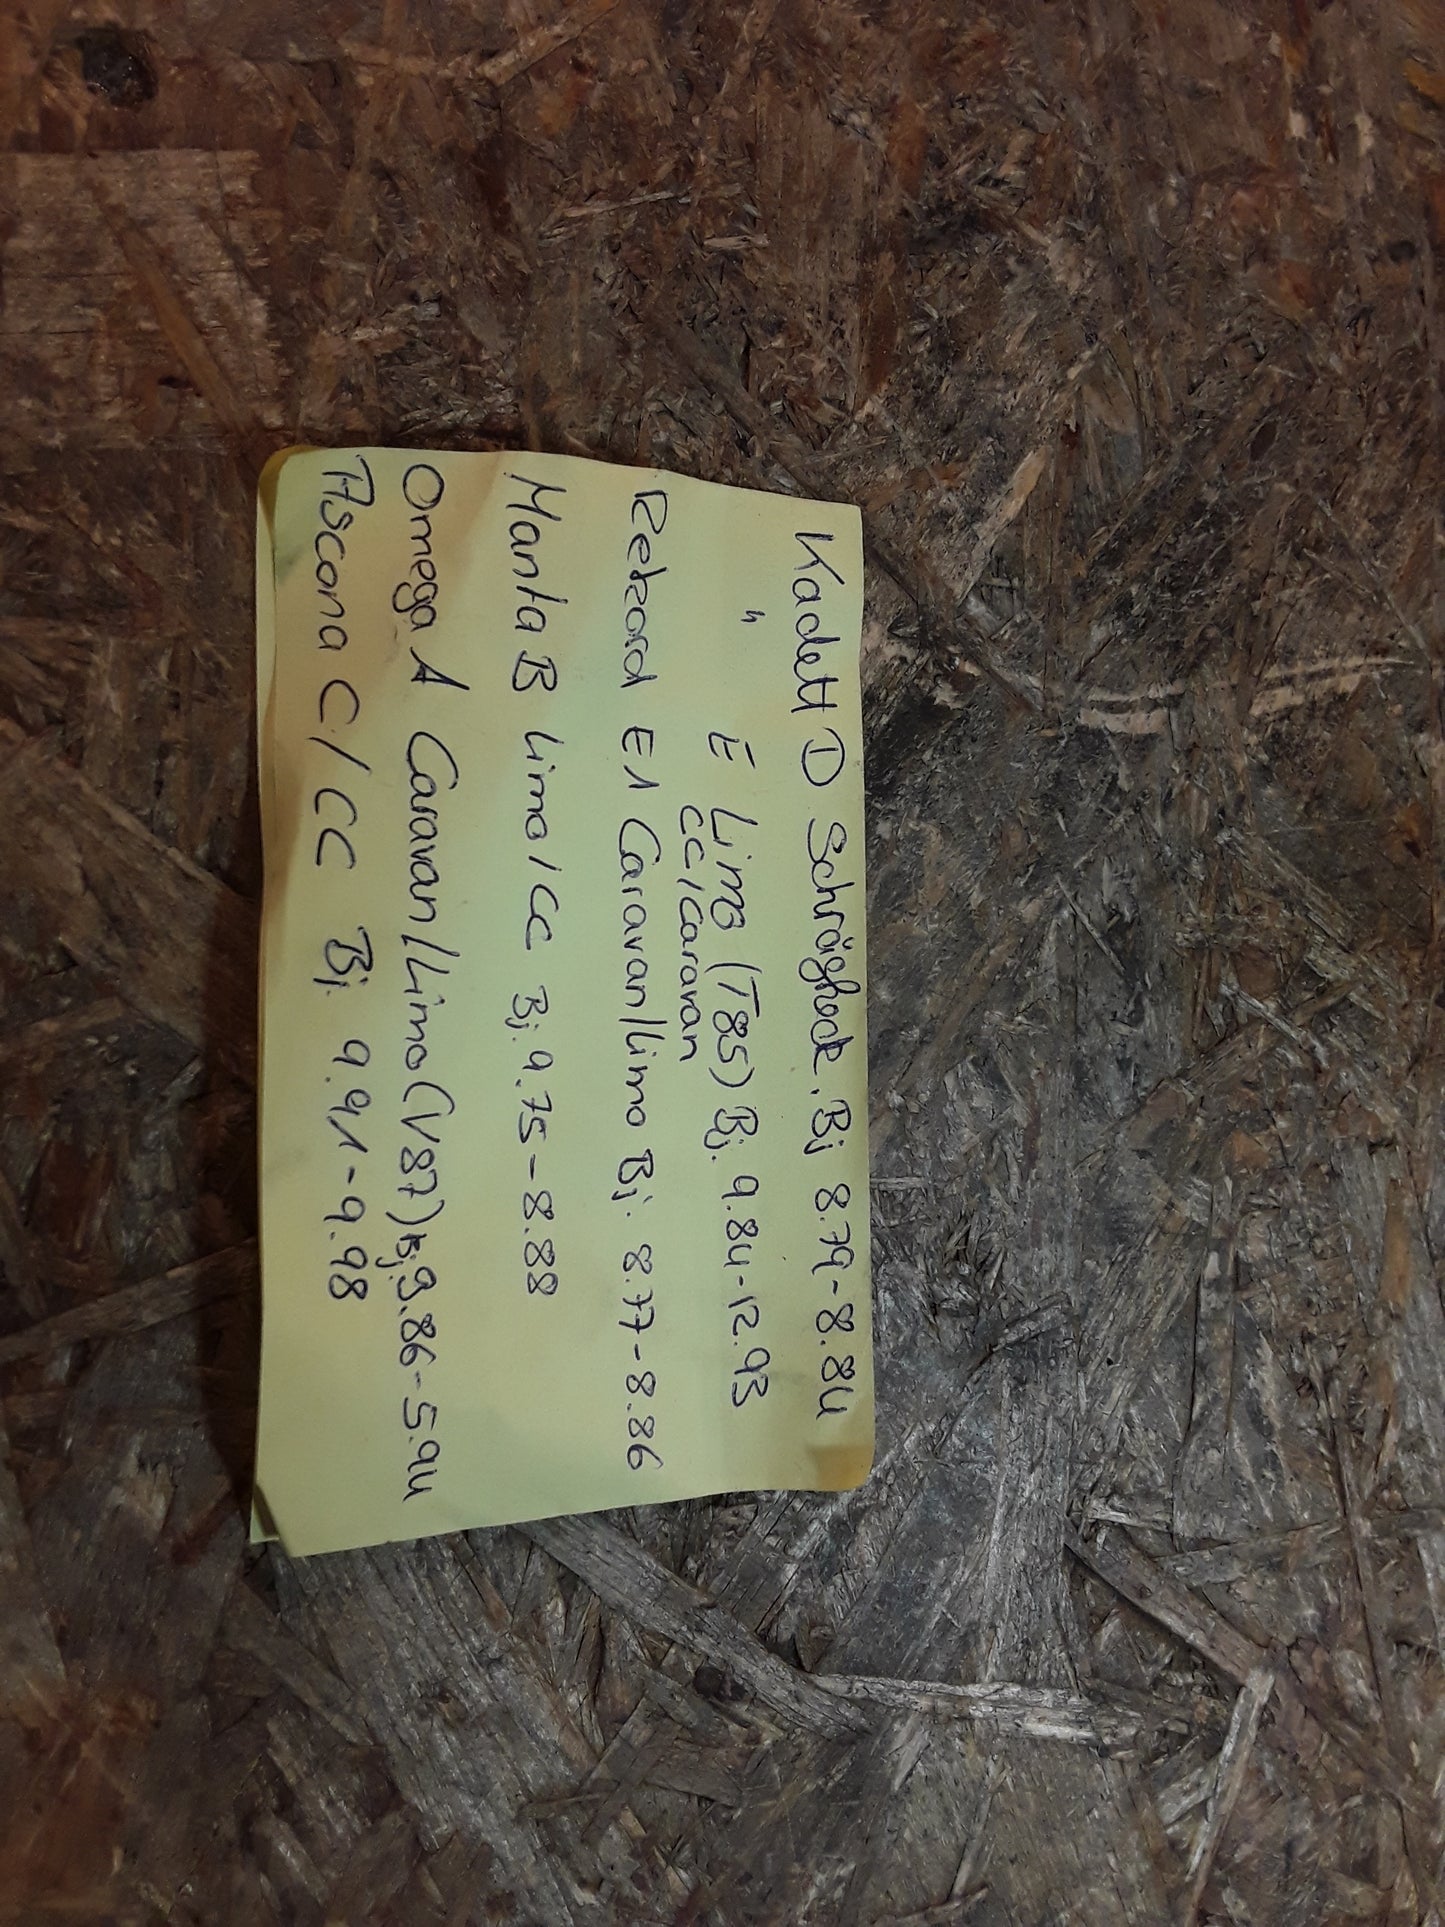 Kadett D Schrägheck. Bj 8.79-8.84
" E Limo (T85) Bj. 9.84-12.93
CC/Caravan
Rekord E1 Caravan/Limo Bj. 8.77-8.86
Manta B Limo/CC Bj. 9.75-8.88
Omega A Caravan/Limo (V87) Bj. 9.86-5.94
Ascona C/CC Bj. 9.91-9.98